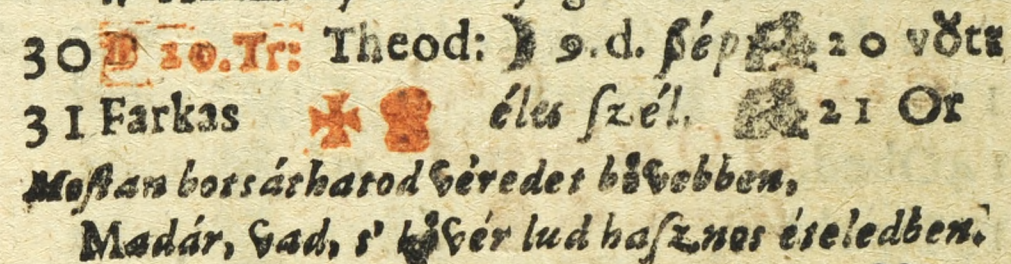 30 D 20. Tr: Theod: ☽ 9. d. ſzép 20 vőtt
31 Farkas ✠ éles ſzél. 21 Or
Moſtan botsáthatod véredet bővebben,
Madár, vad, s' kővér lud haſznos ételedben.